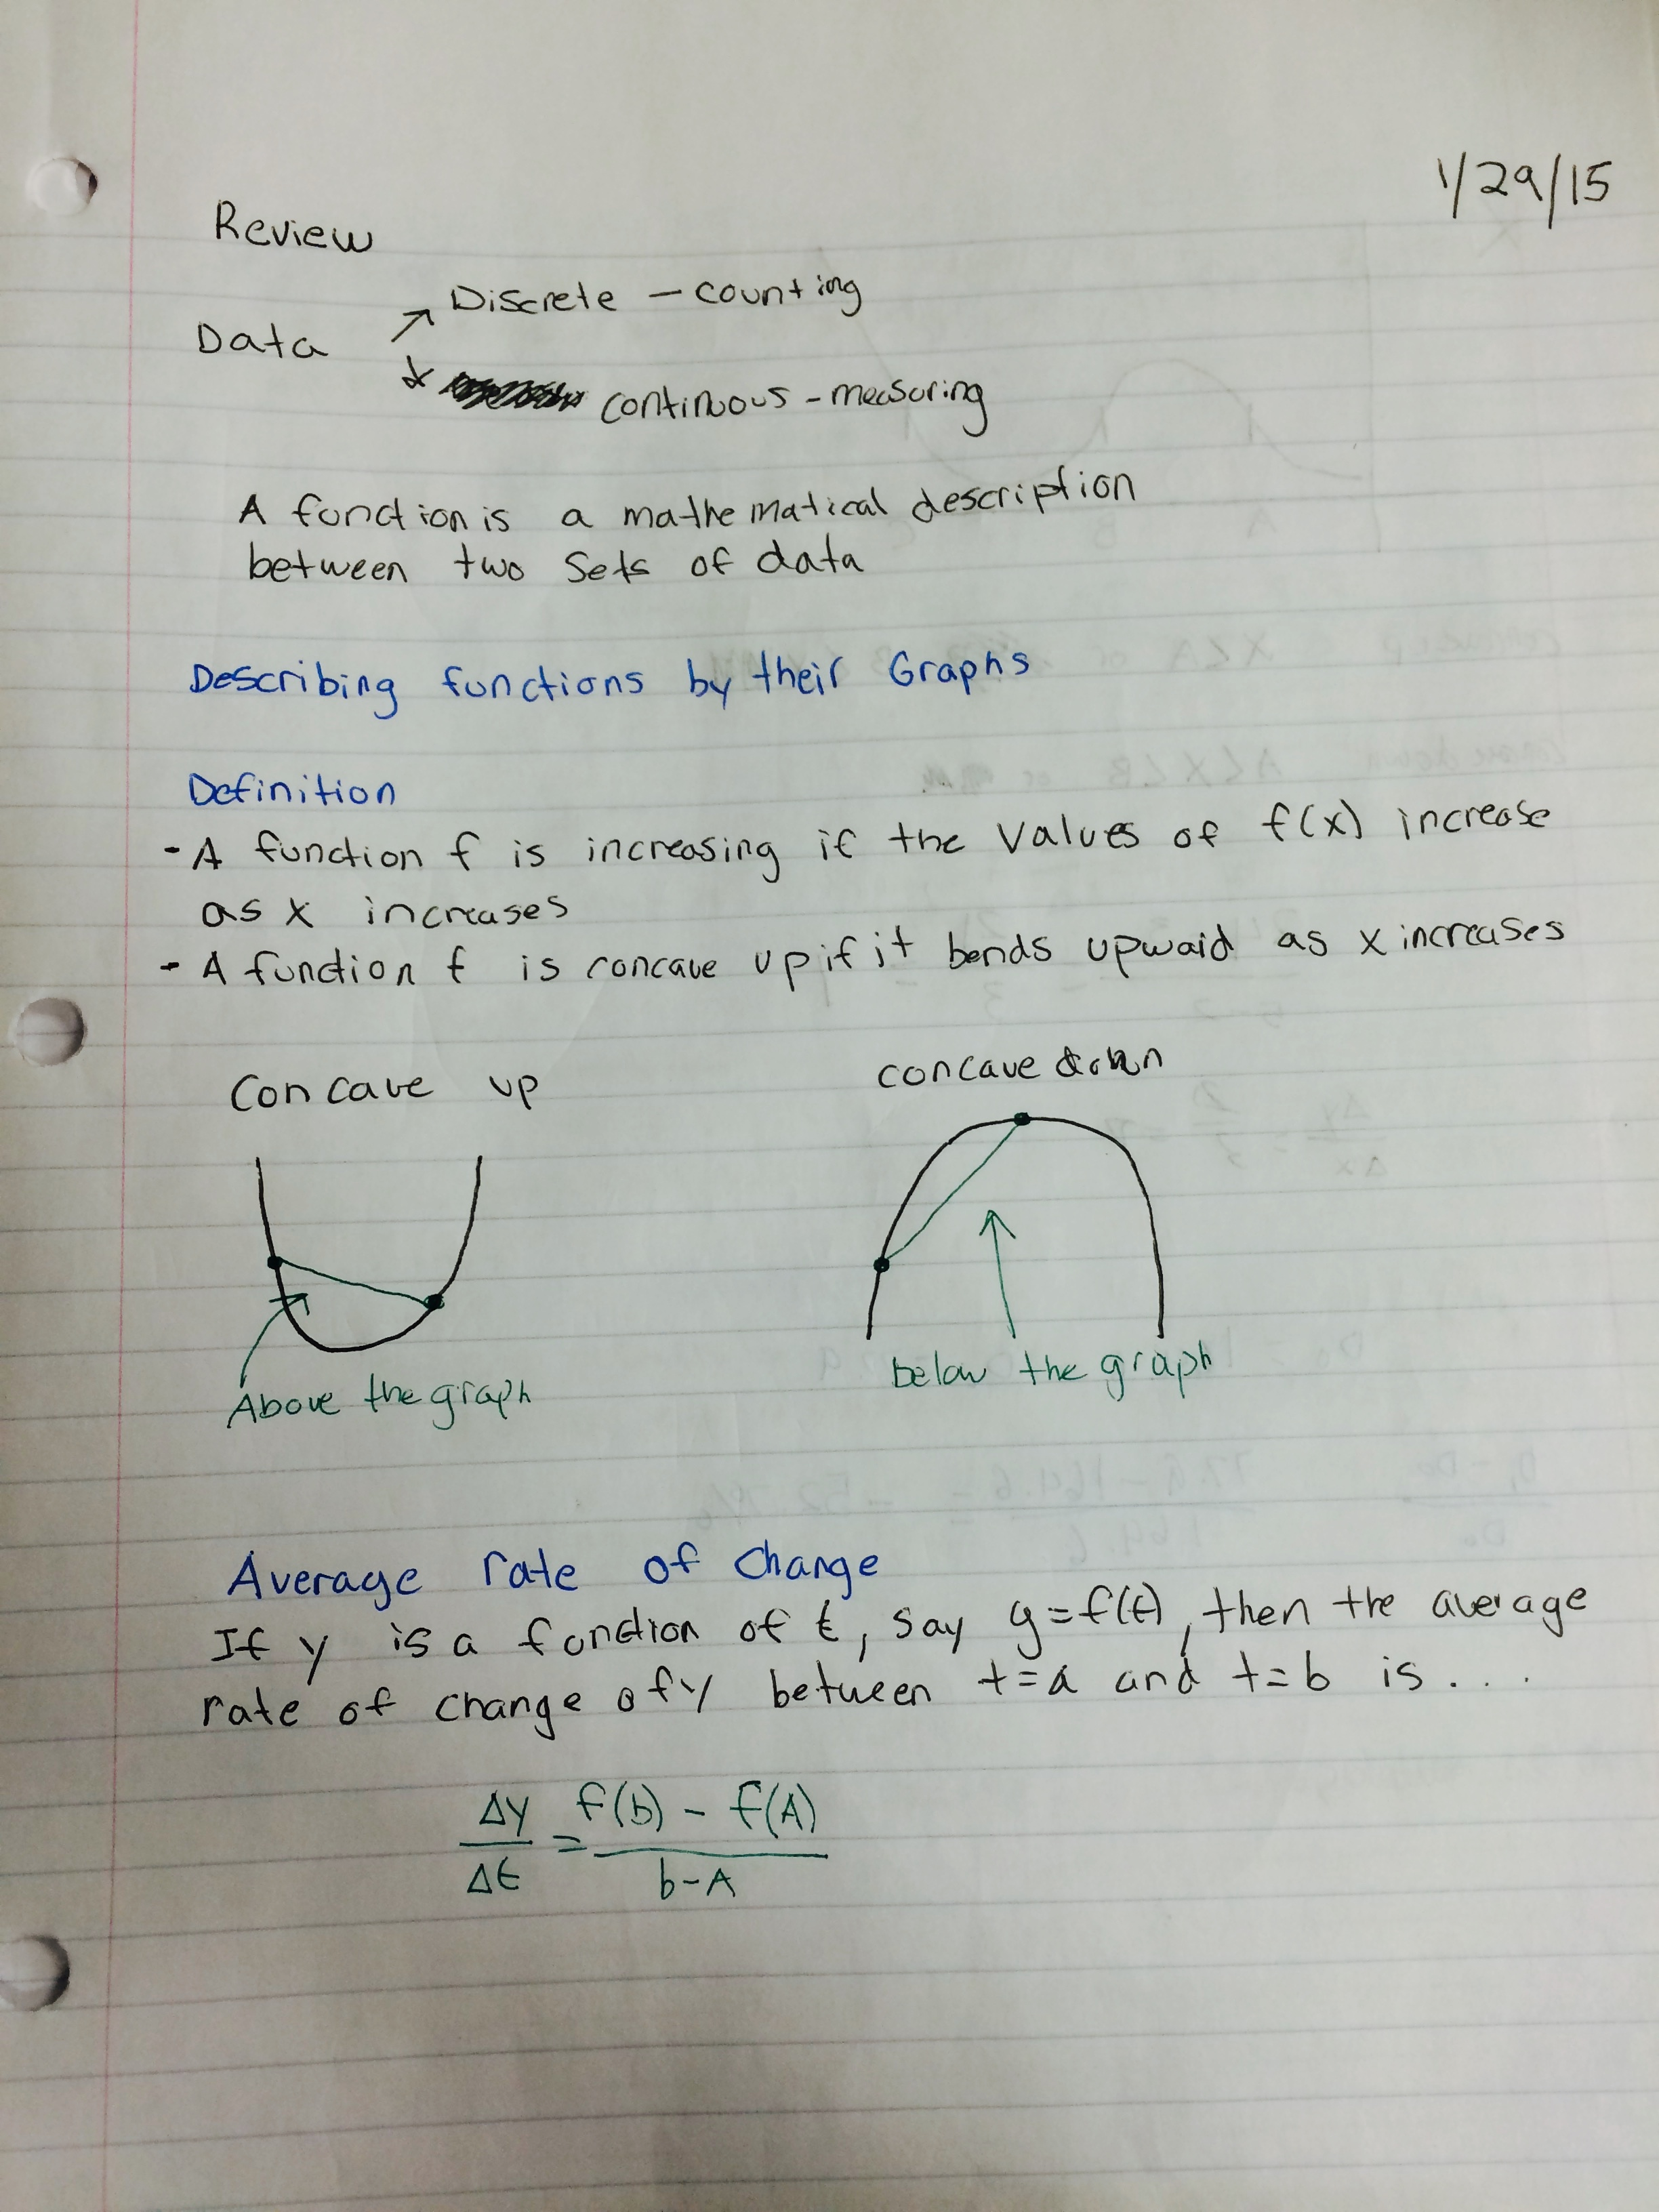 1/29/15
Review
Discrete - counting
Data
continuous - measuring
A function is a mathematical description
between two sets of data
Describing functions by their Graphs
Definition
- A function f is increasing if the values of f(x) increase
as x increases
- A function f is concave up if it bends upward as x increases
Concave up
concave down
Above the graph
below the graph
Average rate of change
If y is a function of t, say y=f(t), then the average
rate of change of y between t=a and t=b is ...
Δy/Δt = f(b) - f(A) / b-A